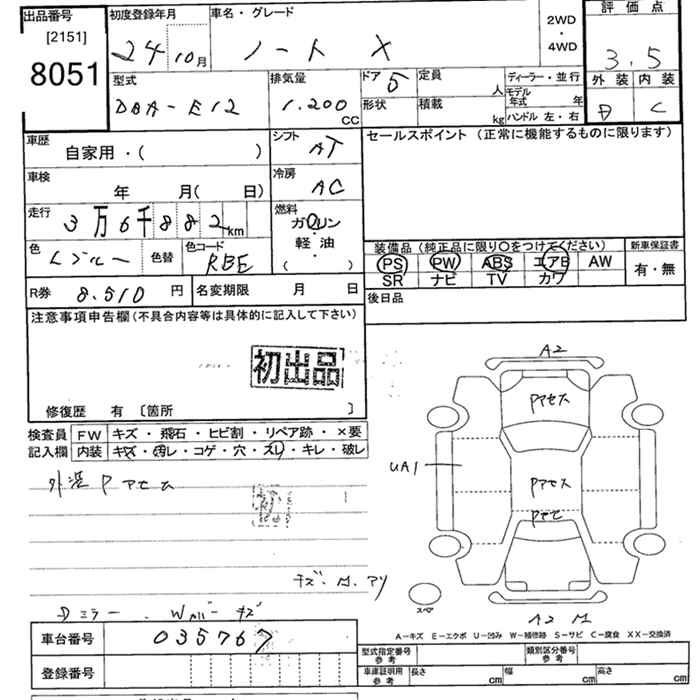 出品番号 初度登録年月 車名・グレード 2WD・4WD 評価点
[2151]
8051 24 10月 ノート X 3.5
型式 排気量 ドア 5 定員 人 ディーラー・並行 外装 内装
モデル年式 年
DBA-E12 1.200 CC 形状 積載 kg ハンドル 左・右 D C
車歴 自家用・( ) シフト AT セールスポイント (正常に機能するものに限ります)
車検 年 月( 日) 冷房 AC
走行 3万6千882km 燃料 ガソリン・軽油・( )
色 Lブルー 色替 色コード RBE 装備品 (純正品に限り○をつけてください) 新車保証書
PS PW ABS エアB AW 有・無
SR ナビ TV カワ
R券 8.510 円 名変期限 月 日 後日品
注意事項申告欄(不具合内容等は具体的に記入して下さい)
初出品
修復歴 有 〔箇所 〕
検査員記入欄 FW キズ・飛石・ヒビ割・リペア跡・×要
内装 キズ・汚レ・コゲ・穴・スレ・キレ・破レ
外装 P アセ
キズ.M.アリ
Dミラー . Wカバー キズ
A2
Pアセス
UA1
Pアセス
Pアセ
スペア
A2 M
A-キズ E-エクボ U-凹み W-補修跡 S-サビ C-腐食 XX-交換済
車台番号 035767 型式指定番号 参考 類別区分番号 参考
登録番号 車庫証明用 参考 長さ cm 幅 cm 高さ cm